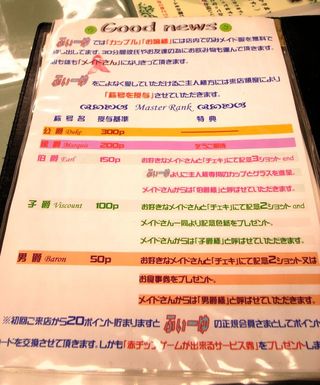 Good news
では「カップル」「お嬢様」には店内でのみメイド服を無料で
貸し出し。30分間彼氏やお友達の為にお飲み物も運んで頂きます。
メイドさん」になりきって頂きます。
をこよなく愛していただけるご主人様方には来店頻度により
「称号を授与」させていただきます。
Master Rank
称号名 授与基準 特典
公爵 Duke 300p
侯爵 Marquis 200p
伯爵 Earl 150p お好きなメイドさんと「チェキ」にて記念3ショット and
よりご主人様専用のカップとグラスを進呈。
メイドさんからは「伯爵様」と呼ばせていただきます。
子爵 Viscount 100p お好きなメイドさんと「チェキ」にて記念2ショット and
メイドさん一同より記念色紙をプレゼント。
メイドさんからは「子爵様」と呼ばせていただきます。
男爵 Baron 50p お好きなメイドさんと「チェキ」にて記念2ショット又は
お食事券をプレゼント。
メイドさんからは「男爵様」と呼ばせていただきます。
※初回ご来店から20ポイント貯まりますと の正規会員さまとしてポイント
カードを交換させて頂きます。しかも「赤チップゲームが出来るサービス券」をプレゼントしま